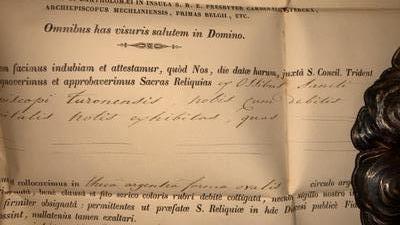 BARTHOLOMÆI IN INSULA S. R. E. PRESBYTER CARDINALIS STERCKX,
ARCHIEPISCOPUS MECHLINIENSIS, PRIMAS BELGII, ETC.
Omnibus has visuris salutem in Domino.
facimus indubiam et attestamur, quòd Nos, die datæ harum, juxtà S. Concil. Trident
recognoverimus et approbaverimus Sacras Reliquias ex Ossibus Sancti
Episcopi Turonensis notis cum debitis
notis exhibitas, quas
collocavimus in theca argentea forma ovalis circulo
bene clausâ et filo serico coloris rubri debitè colligatâ, necnon sigillo nostro
firmiter obsignatâ: permittentes ut præfatæ S. Reliquiæ in hâc Diœcesi publicè
possint, nullatenùs tamen exaltari.